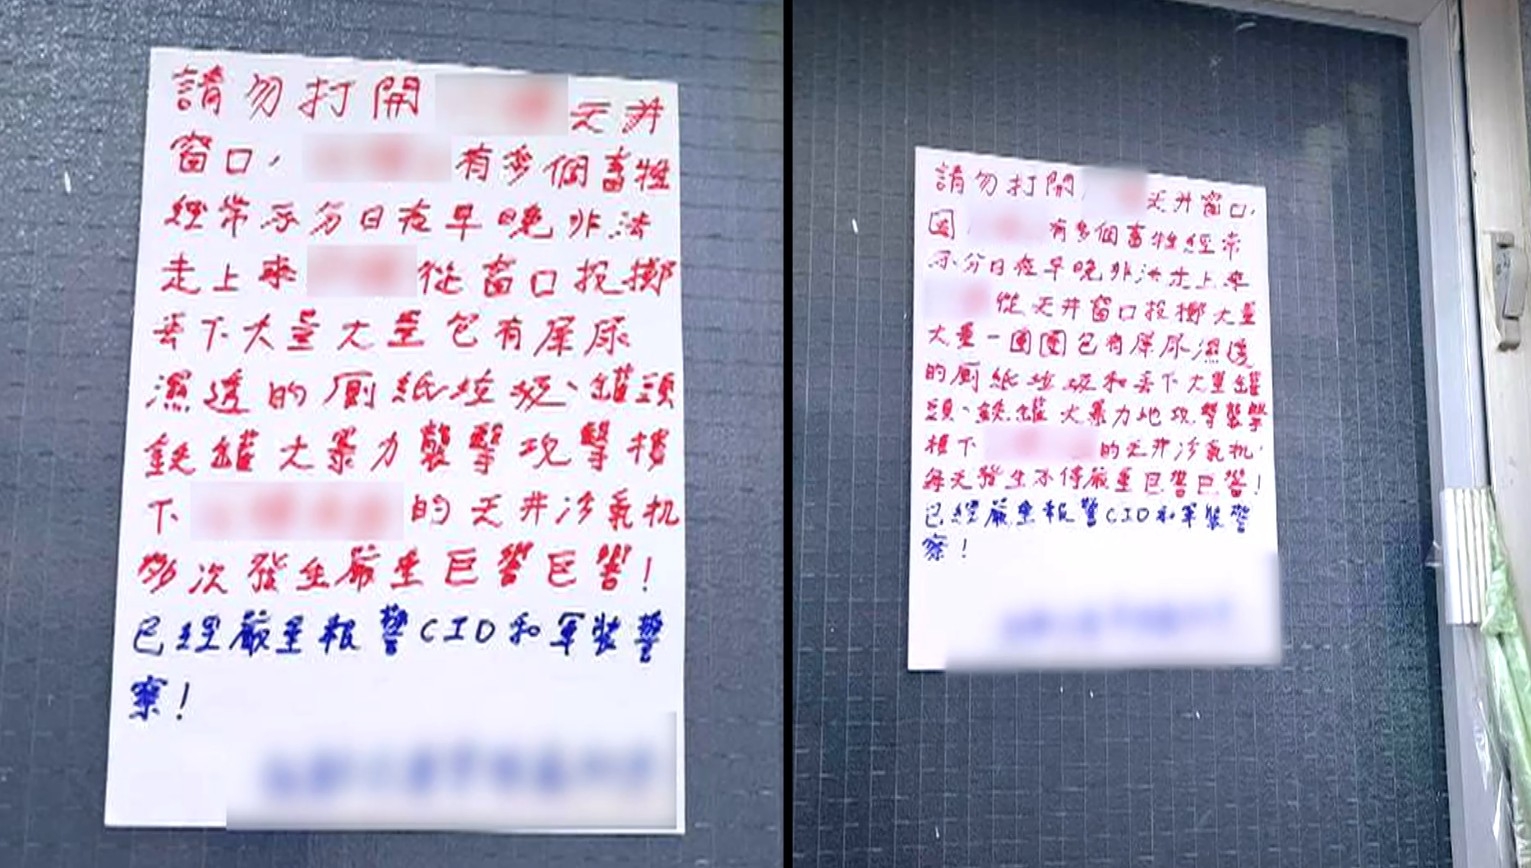 請勿打開 天井
窗口, 有多個畜牲
經常不分日夜早晚非法
走上來 從窗口投擲
丟下大量大量包有屎尿
濕透的厠紙垃圾、罐頭
鉄罐大暴力襲擊攻擊樓
下 的天井冷氣机
多次發生嚴重巨響巨響!
已經嚴重報警CID和軍裝警
察!
請勿打開 天井窗口,
因 有多個畜牲經常
不分日夜早晚非法走上來
從天井窗口投擲大量
大量一團團包有屎尿濕透
的厠紙垃圾和丟下大量罐
頭、鉄罐大暴力地攻擊襲擊
樓下 的天井冷氣机,
每天發生不停嚴重巨響巨響!
已經嚴重報警CID和軍裝警
察!